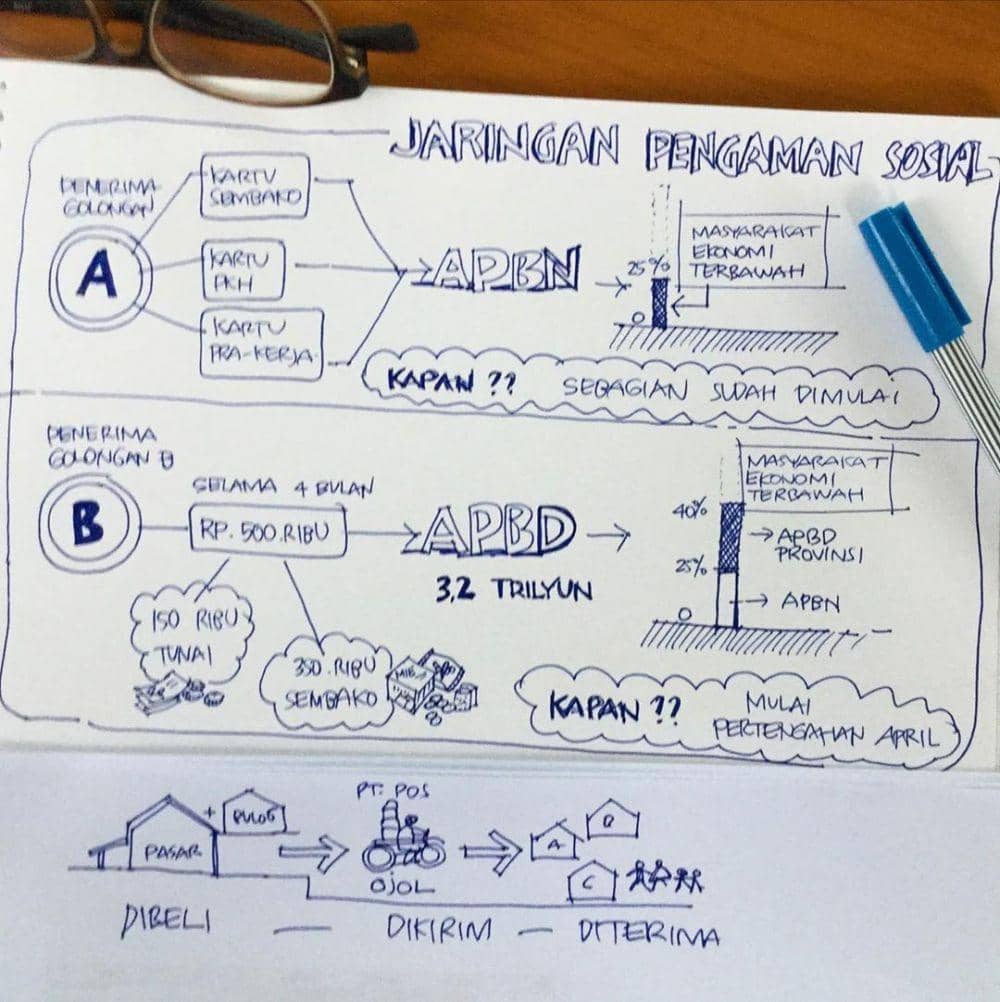 JARINGAN PENGAMAN SOSIAL
PENERIMA
GOLONGAN
A
KARTU
SEMBAKO
KARTU
PKH
KARTU
PRA-KERJA
APBN
25%
0
MASYARAKAT
EKONOMI
TERBAWAH
KAPAN ?? SEBAGIAN SUDAH DIMULAI
PENERIMA
GOLONGAN B
B
SELAMA 4 BULAN
RP. 500.RIBU
150 RIBU
TUNAI
350.RIBU
SEMBAKO
APBD
3,2 TRILYUN
40%
25%
0
MASYARAKAT
EKONOMI
TERBAWAH
APBD
PROVINSI
APBN
KAPAN ?? MULAI
PERTENGAHAN APRIL
PASAR
+
BULOG
PT. POS
OJOL
A
B
C
DIBELI — DIKIRIM — DITERIMA